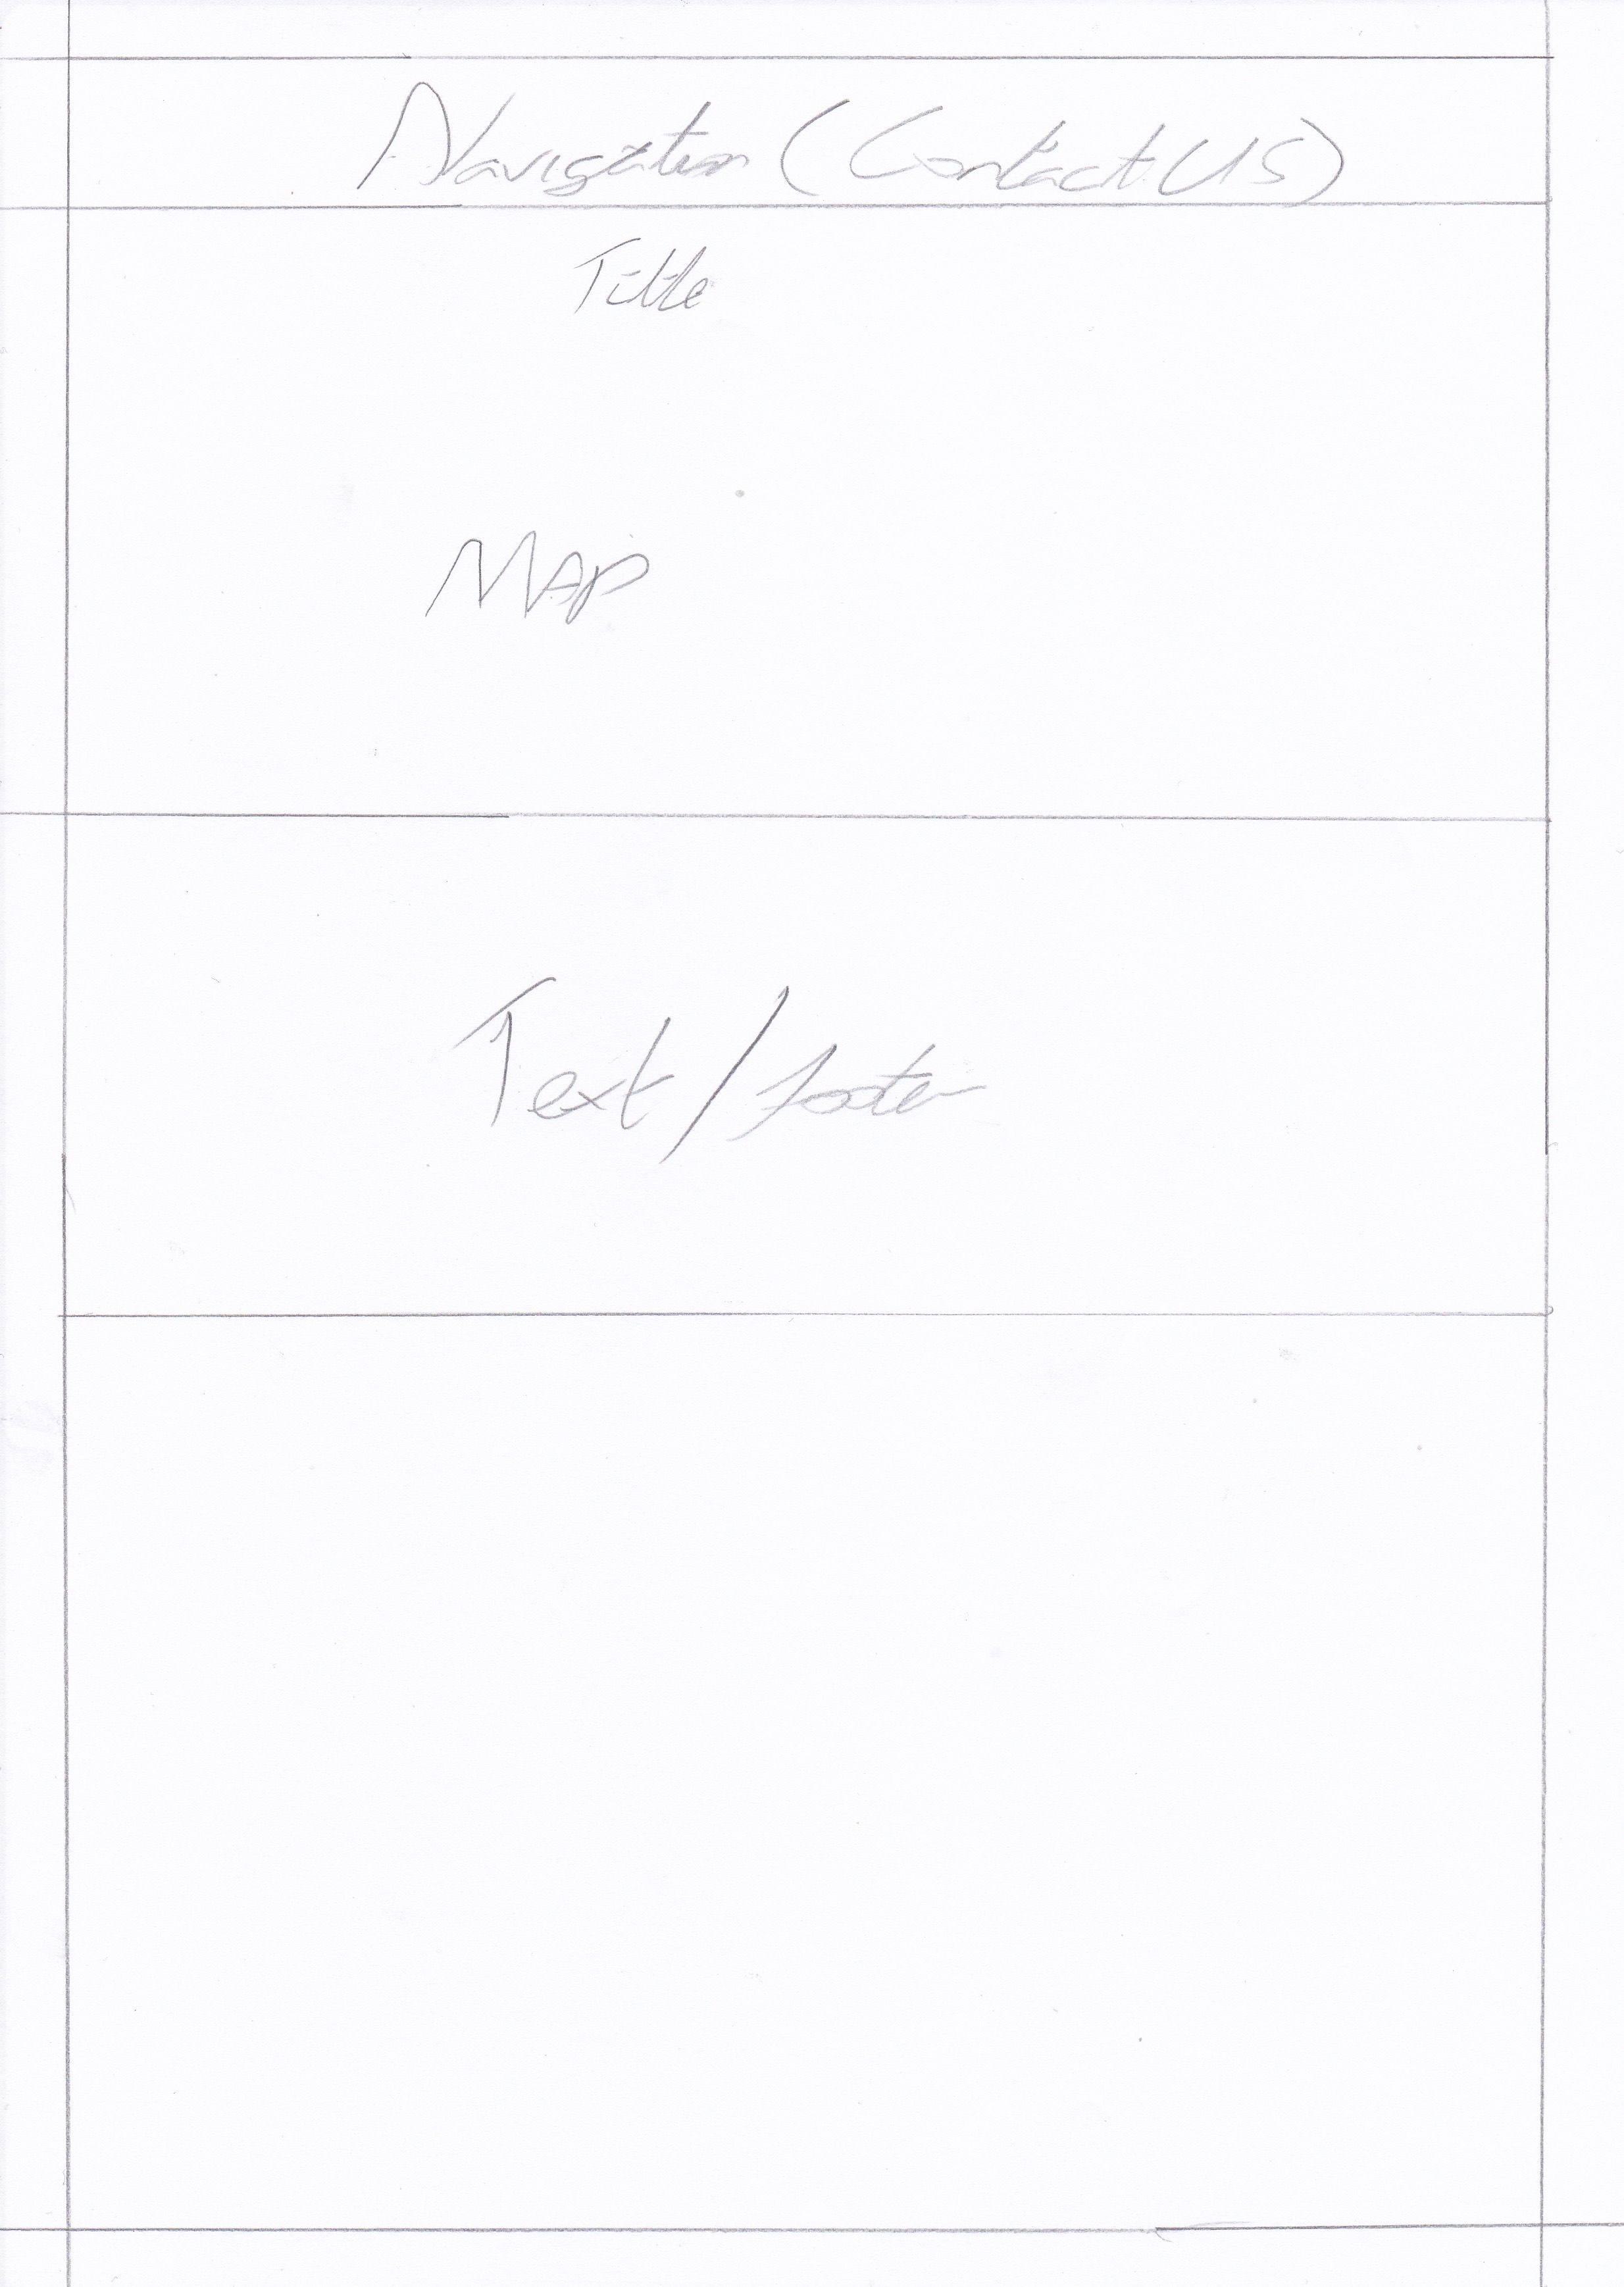 Navigation (Contact US)
Title
MAP
Text/footer